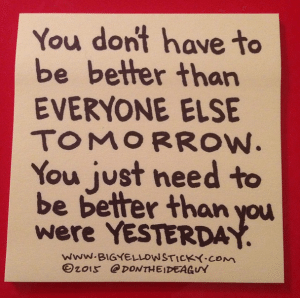 You don't have to
be better than
EVERYONE ELSE
TOMORROW.
You just need to
be better than you
were YESTERDAY.
WWW.BIGYELLOWSTICKY.COM
©2015 @DONTHEIDEAGUY